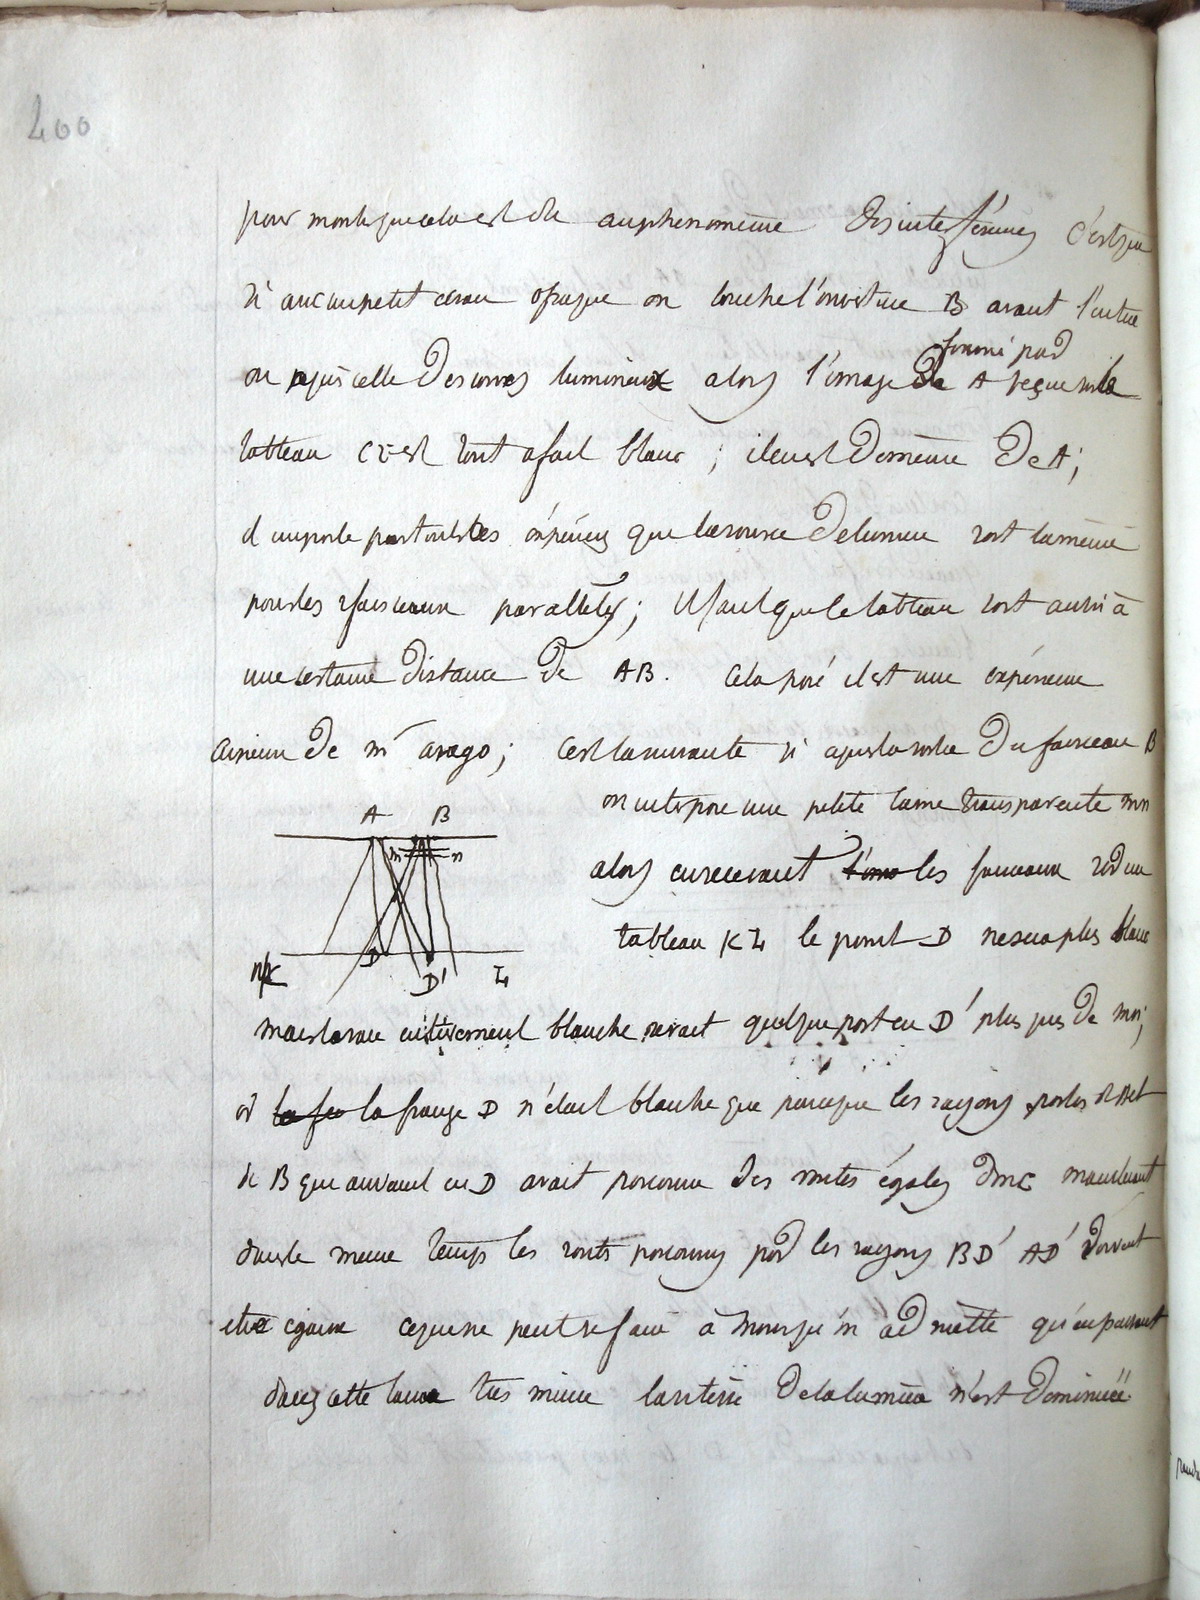 400
pour montrer que cela est dû au phenomène des interférences c'est que
si avec un petit écran opaque on bouche l'ouverture B avant l'entrée
ou après celle des ondes lumineux alors l'image de formé par A reçue sur le
tableau est tout a fait blanc ; il en est de même de A ;
il importe pour toutes ces expériences que la source de lumière soit la même
pour les 2 faisceaux parallèles ; il faut que le tableau soit aussi à
une certaine distance de AB. Cela posé il est une expérience
curieuse de mr arago ; c'est la suivante si après la sortie du faisceau B
on interpose une petite lame transparente mn
A B
m n
alors en recevant l'ima les faisceaux sur un
tableau KL le point D ne sera plus blanc
D D' K L
mais la raie entièrement blanche serait quelque part en D' plus près de mn ;
or la fr la frange D n'était blanche que parceque les rayons partis de A et
de B que arrivaient en D avait parcouru des routes égales donc maintenant
dans le meme temps les routes parcourus par les rayons BD' AD' doivent
etre égaux ce qui ne peut se faire à moins qu'on admette qu'en passant
dans cette lame très mince la vitesse de la lumière n'est diminuée